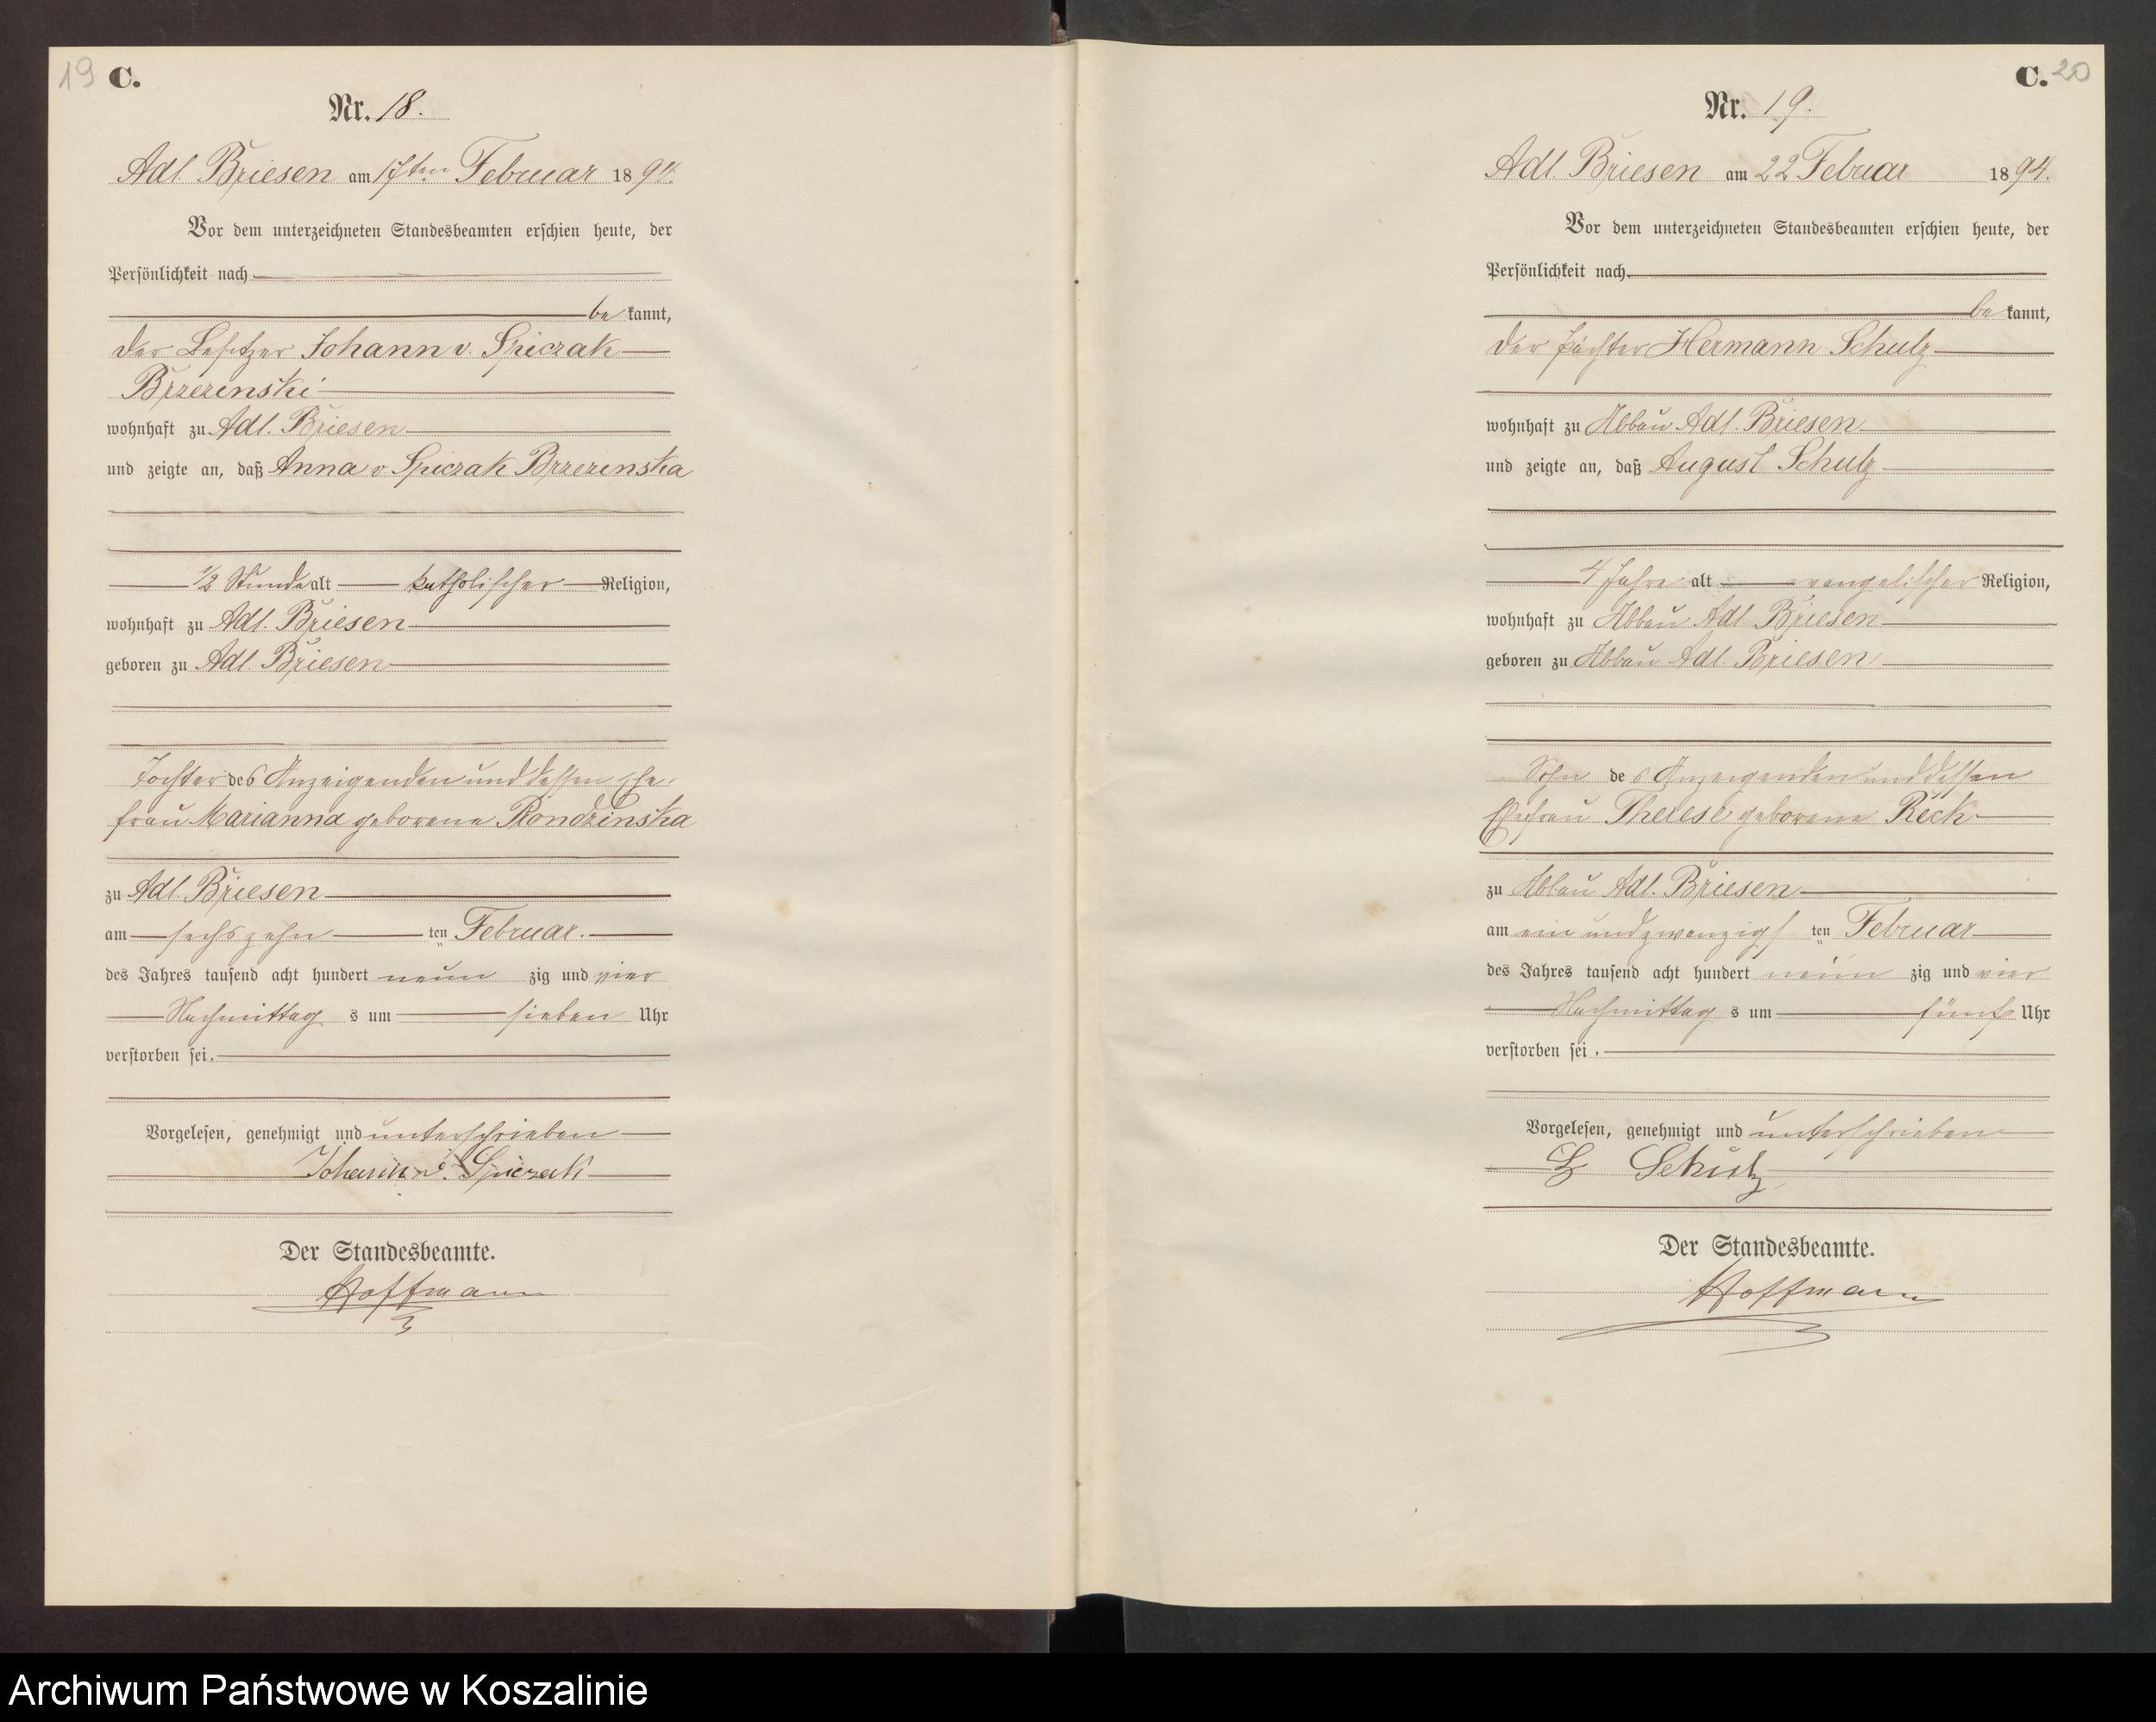 19 C.
Nr. 18.
Adl. Briesen am 17ten Februar 1894.
Vor dem unterzeichneten Standesbeamten erschien heute, der
Persönlichkeit nach
be kannt,
der Besitzer Johann v. Spiczak
Brzezinski
wohnhaft zu Adl. Briesen
und zeigte an, daß Anna v Spiczak Brzezinska
1/2 Stunde alt katholischer Religion,
wohnhaft zu Adl. Briesen
geboren zu Adl. Briesen
Tochter des Anzeigenden und dessen Ehe-
frau Marianna geborene Rondzinska
zu Adl. Briesen
am sechszehn ten Februar.
des Jahres tausend acht hundert neun zig und vier
Nachmittag s um sieben Uhr
verstorben sei.
Vorgelesen, genehmigt und unterschrieben
Johann v. Spiczak
Der Standesbeamte.
Hoffmann
C. 20
Nr. 19.
Adl. Briesen am 22 Februar 1894.
Vor dem unterzeichneten Standesbeamten erschien heute, der
Persönlichkeit nach
be kannt,
der Pächter Hermann Schulz
wohnhaft zu Abbau Adl. Briesen
und zeigte an, daß August Schulz
4 Jahre alt evangelischer Religion,
wohnhaft zu Abbau Adl. Briesen
geboren zu Abbau Adl. Briesen
Sohn des Anzeigenden und dessen
Ehefrau Therese geborene Reck
zu Abbau Adl. Briesen
am ein und zwanzigs ten Februar
des Jahres tausend acht hundert neun zig und vier
Nachmittag s um fünf Uhr
verstorben sei.
Vorgelesen, genehmigt und unterschrieben
Schulz
Der Standesbeamte.
Hoffmann
Archiwum Państwowe w Koszalinie